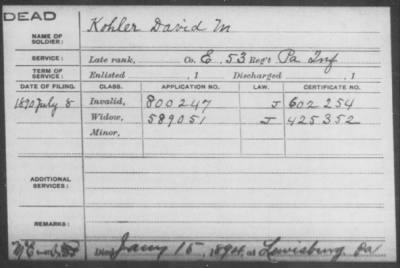 DEAD
NAME OF SOLDIER: Kohler David M
SERVICE: Late rank, Co. E. 53 Reg't Pa Inf
TERM OF SERVICE: Enlisted , 1 Discharged , 1
DATE OF FILING. CLASS. APPLICATION NO. LAW. CERTIFICATE NO.
1890 July 8 Invalid, 800247 J 602254
Widow, 589051 J 425352
Minor,
ADDITIONAL SERVICES:
REMARKS:
Died Jany 15, 1894, at Lewisburg Pa